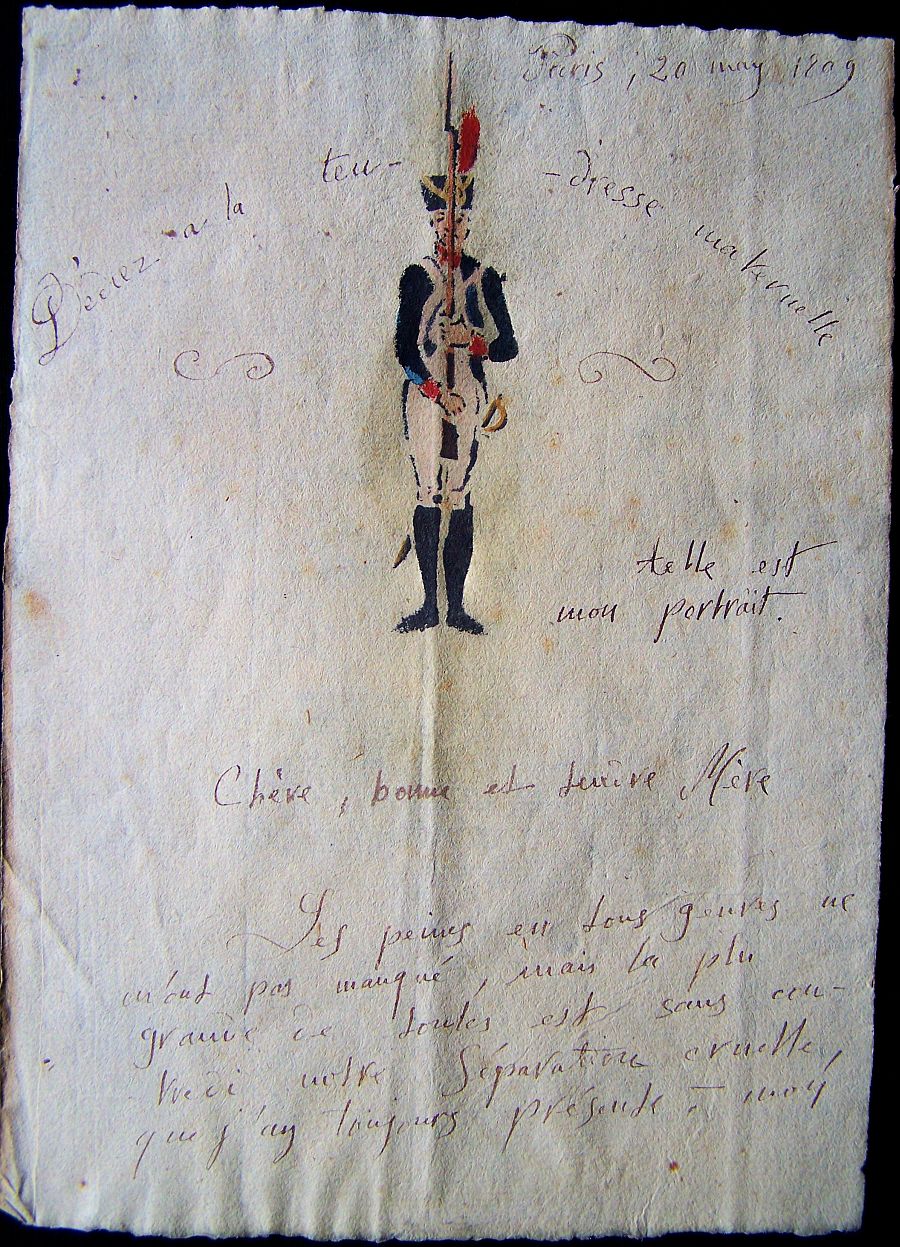 Paris, 20 may 1809
Dédiez a la ten- -dresse maternelle
telle est
mon portrait.
Chère, bonne et tendre Mère
Les peines en tous genres ne
m'ont pas manqué, mais la plu
grande de toutes est sans con-
tredi notre Séparation cruelle,
que j'ay toujours présente à moy